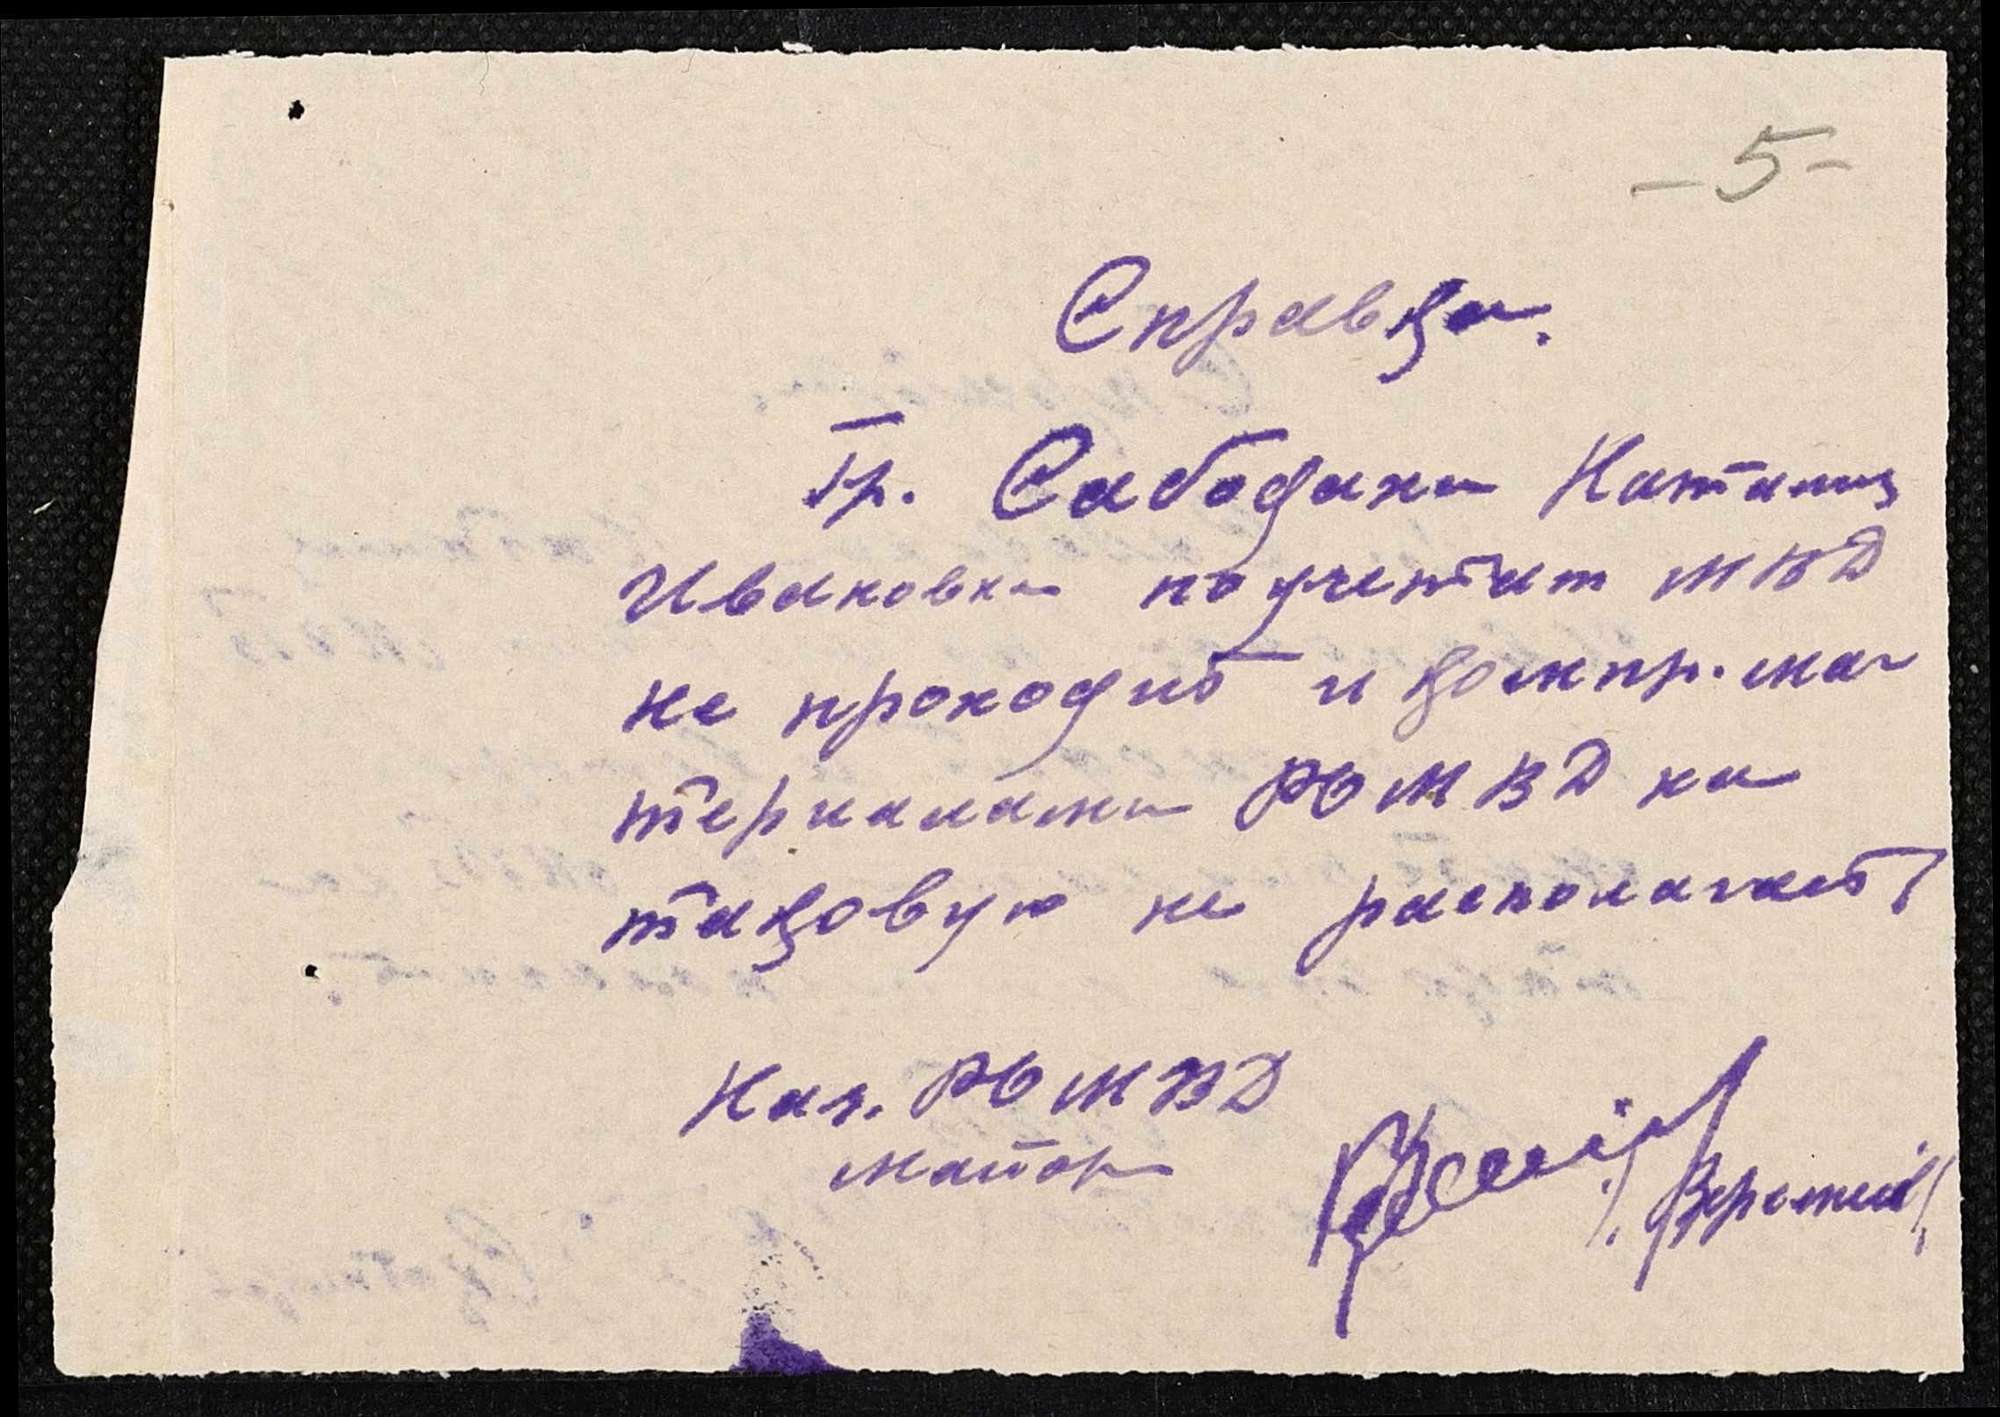 -5-
Справка.
Гр. Сабодаха Наталия
Ивановна по учетам МВД
не проходит и компр. ма-
териалами РО МВД на
таковую не располагает
Нач. РО МВД
майор